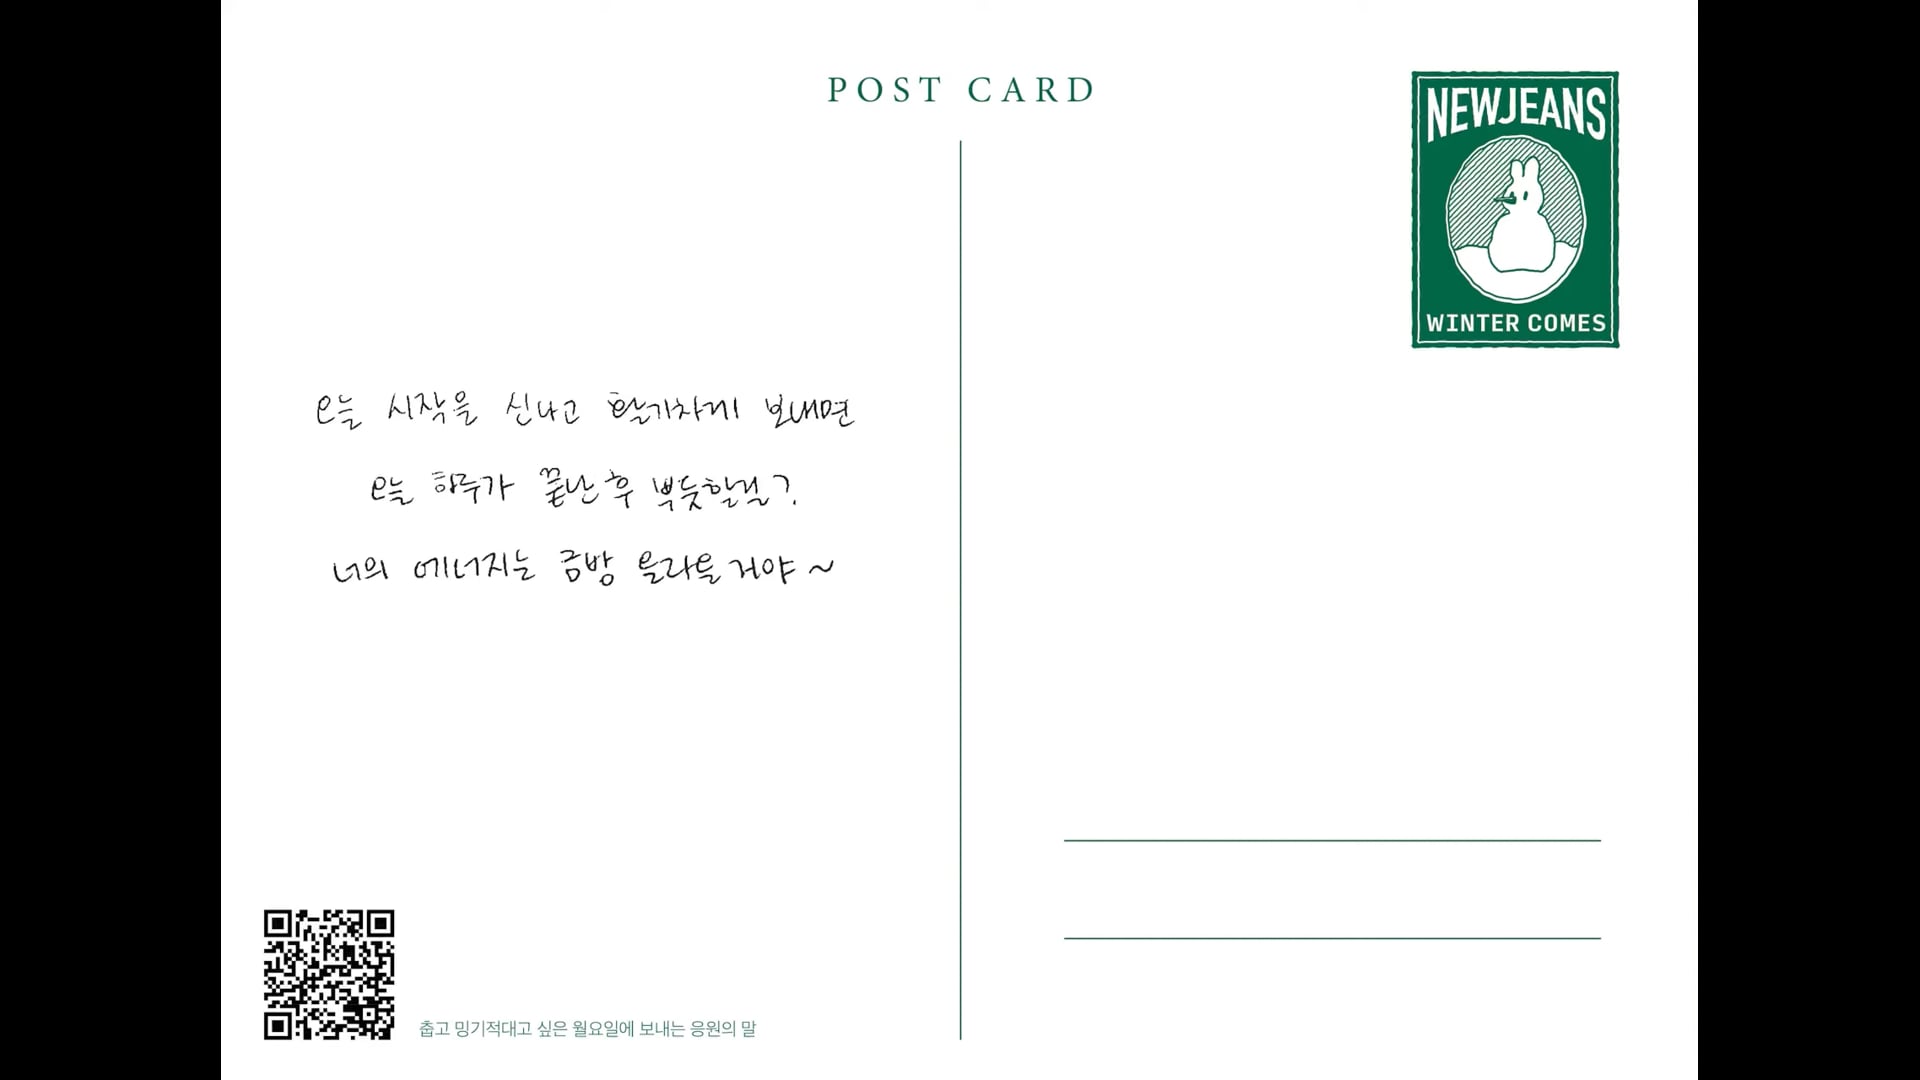 POST CARD
NEWJEANS
WINTER COMES
오늘 시작을 신나고 활기차게 보내면
오늘 하루가 끝난 후 뿌듯할걸?
너의 에너지는 금방 올라올거야~
춥고 밍기적대고 싶은 월요일에 보내는 응원의 말